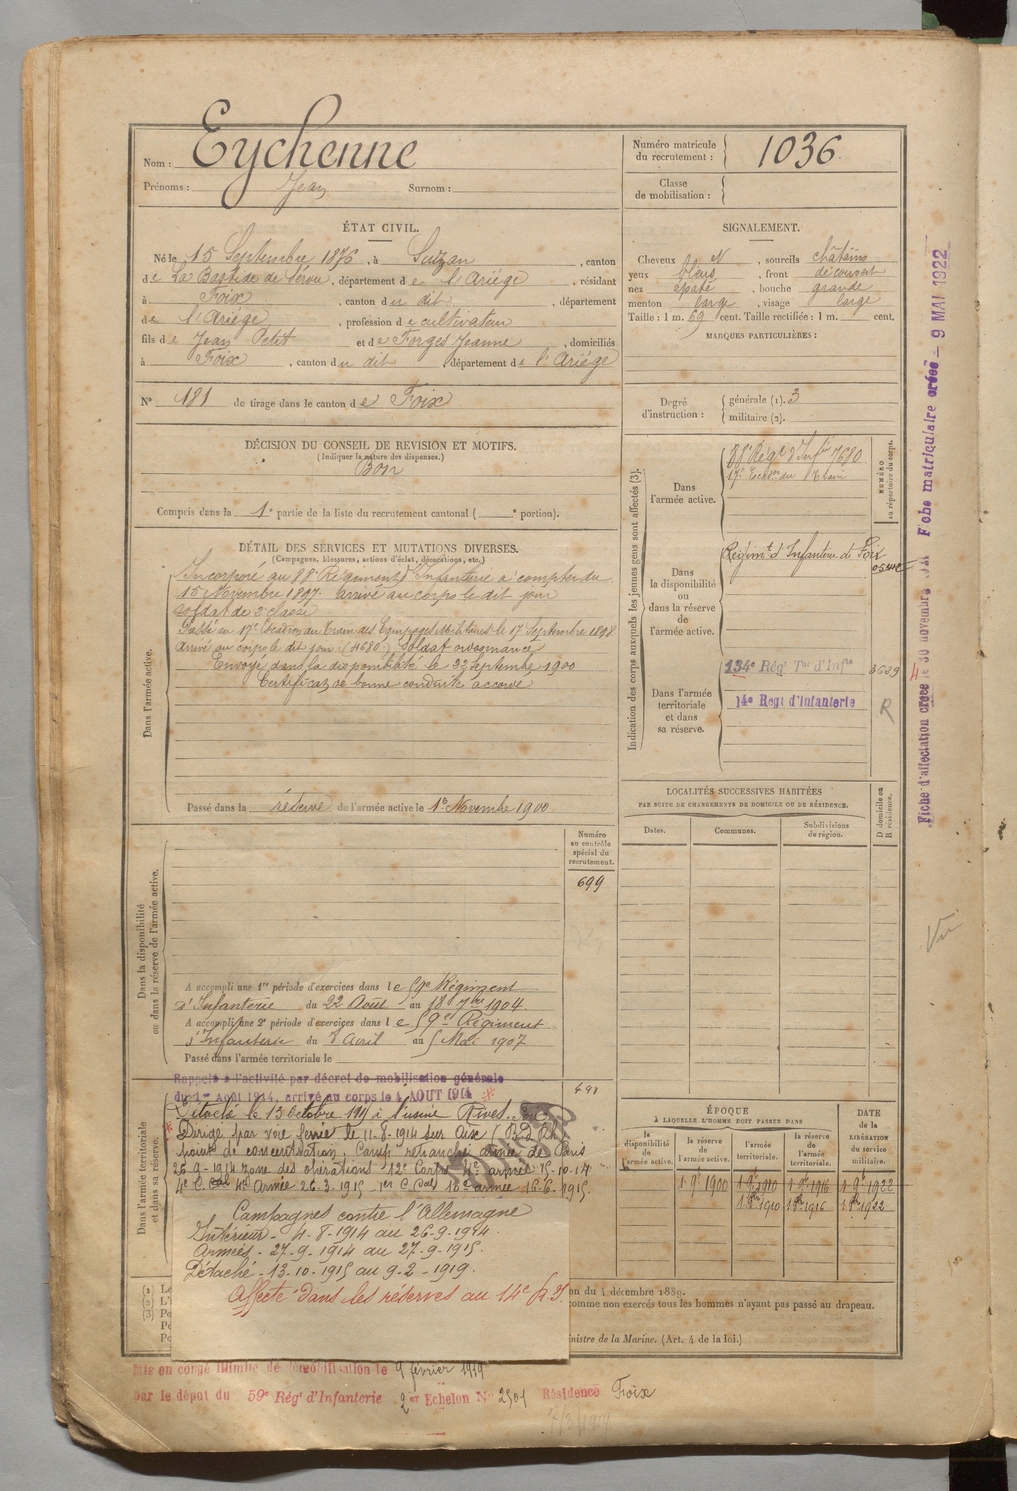 Nom : Eychenne
Prénoms : Jean Surnom :
Numéro matricule du recrutement : 1036
Classe de mobilisation :
ÉTAT CIVIL.
Né le 15 Septembre 1876, à Suzan, canton
de La Bastide de Sérou, département de l'Ariège, résidant
à Foix, canton du dit, département
de l'Ariège, profession de cultivateur
fils de Jean Petit et de Forges Jeanne, domiciliés
à Foix, canton du dit, département de l'Ariège
N° 181 de tirage dans le canton de Foix
SIGNALEMENT.
Cheveux N, sourcils châtains
yeux bleus, front découvert
nez épaté, bouche grande
menton large, visage large
Taille : 1 m. 69 cent. Taille rectifiée : 1 m. cent.
MARQUES PARTICULIÈRES :
Degré d'instruction : générale (1). 3
militaire (2).
DÉCISION DU CONSEIL DE REVISION ET MOTIFS.
(Indiquer la nature des dispenses.)
Bon
Compris dans la 1e partie de la liste du recrutement cantonal ( e portion).
DÉTAIL DES SERVICES ET MUTATIONS DIVERSES.
(Campagnes, blessures, actions d'éclat, décorations, etc.)
Dans l'armée active.
Incorporé au 88e Régiment d'Infanterie à compter du
15 Novembre 1897. Arrivé au corps le dit jour
soldat de 2e classe
Passé au 17e Escadron du Train des Equipages Militaires le 17 Septembre 1898
Arrivé au corps le dit jour. (4680) Soldat ordonnance
Envoyé dans la disponibilité le 22 Septembre 1900
Certificat de bonne conduite accordé
Passé dans la réserve de l'armée active le 1er Novembre 1900
Indication des corps auxquels les jeunes gens sont affectés (3).
NUMÉRO au répertoire du corps.
Dans l'armée active.
88e Régt d'Infie 7680
17e Escadron du Train
Dans la disponibilité ou dans la réserve de l'armée active.
Régimt d'Infanterie de Foix
Dans l'armée territoriale et dans sa réserve.
134e Régt Tal d'Infie 3639
14e Regt d'Infanterie R
LOCALITÉS SUCCESSIVES HABITÉES
PAR SUITE DE CHANGEMENTS DE DOMICILE OU DE RÉSIDENCE.
D domicile ou R résidence.
Dates. Communes. Subdivisions de région.
Dans la disponibilité ou dans la réserve de l'armée active.
Numéro au contrôle spécial du recrutement.
699
A accompli une 1re période d'exercices dans le 59e Régiment
d'Infanterie du 22 Août au 18 7bre 1904.
A accompli une 2e période d'exercices dans le 59e Régiment
d'Infanterie du 8 Avril au 5 Mai 1907
Passé dans l'armée territoriale le
Dans l'armée territoriale et dans sa réserve.
Rappelé à l'activité par décret de mobilisation générale
du 1er Août 1914, arrivé au corps le 4 AOUT 1914
491
Détaché le 13 Octobre 1915 à l'usine Rives.
Dirigé par voie ferrée le 11-8-1914 sur Aix
point de concentration. Camp retranché armée de Paris
26-9-1914 zone des opérations 12e Corps 4e armée 15-10-14
4e C. Cal 4e Armée 26-3-1915 - 1er C. Cal 10e armée 16-6-1915.
Campagnes contre l'Allemagne
Intérieur - 4-8-1914 au 26-9-1914
Armées - 27-9-1914 au 27-9-1915.
Détaché - 13-10-1915 au 9-2-1919.
Affecté dans les réserves au 14e R.I.
ÉPOQUE
À LAQUELLE L'HOMME DOIT PASSER DANS
DATE de la LIBÉRATION du service militaire.
la disponibilité de l'armée active. la réserve de l'armée active. l'armée territoriale. la réserve de l'armée territoriale.
1 9e 1900 1 9e 1910 1 9e 1916 1 9e 1922
1 8bre 1910 1 8bre 1916 1 8bre 1922
on du 4 décembre 1889.
comme non exercés tous les hommes n'ayant pas passé au drapeau.
inistre de la Marine. (Art. 4 de la loi.)
Mis en congé illimité de démobilisation le 9 février 1919
par le dépôt du 59e Régt d'Infanterie 2er Echelon N° 2501 Résidence Foix
Fiche d'affectation créée le 30 novembre Fiche matriculaire créée - 9 MAI 1922
Vu